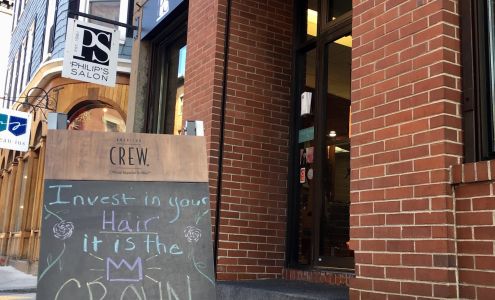 PS
PHILIP'S
SALON
AMERICAN
CREW.
Invest in your
Hair
it is the
CROWN